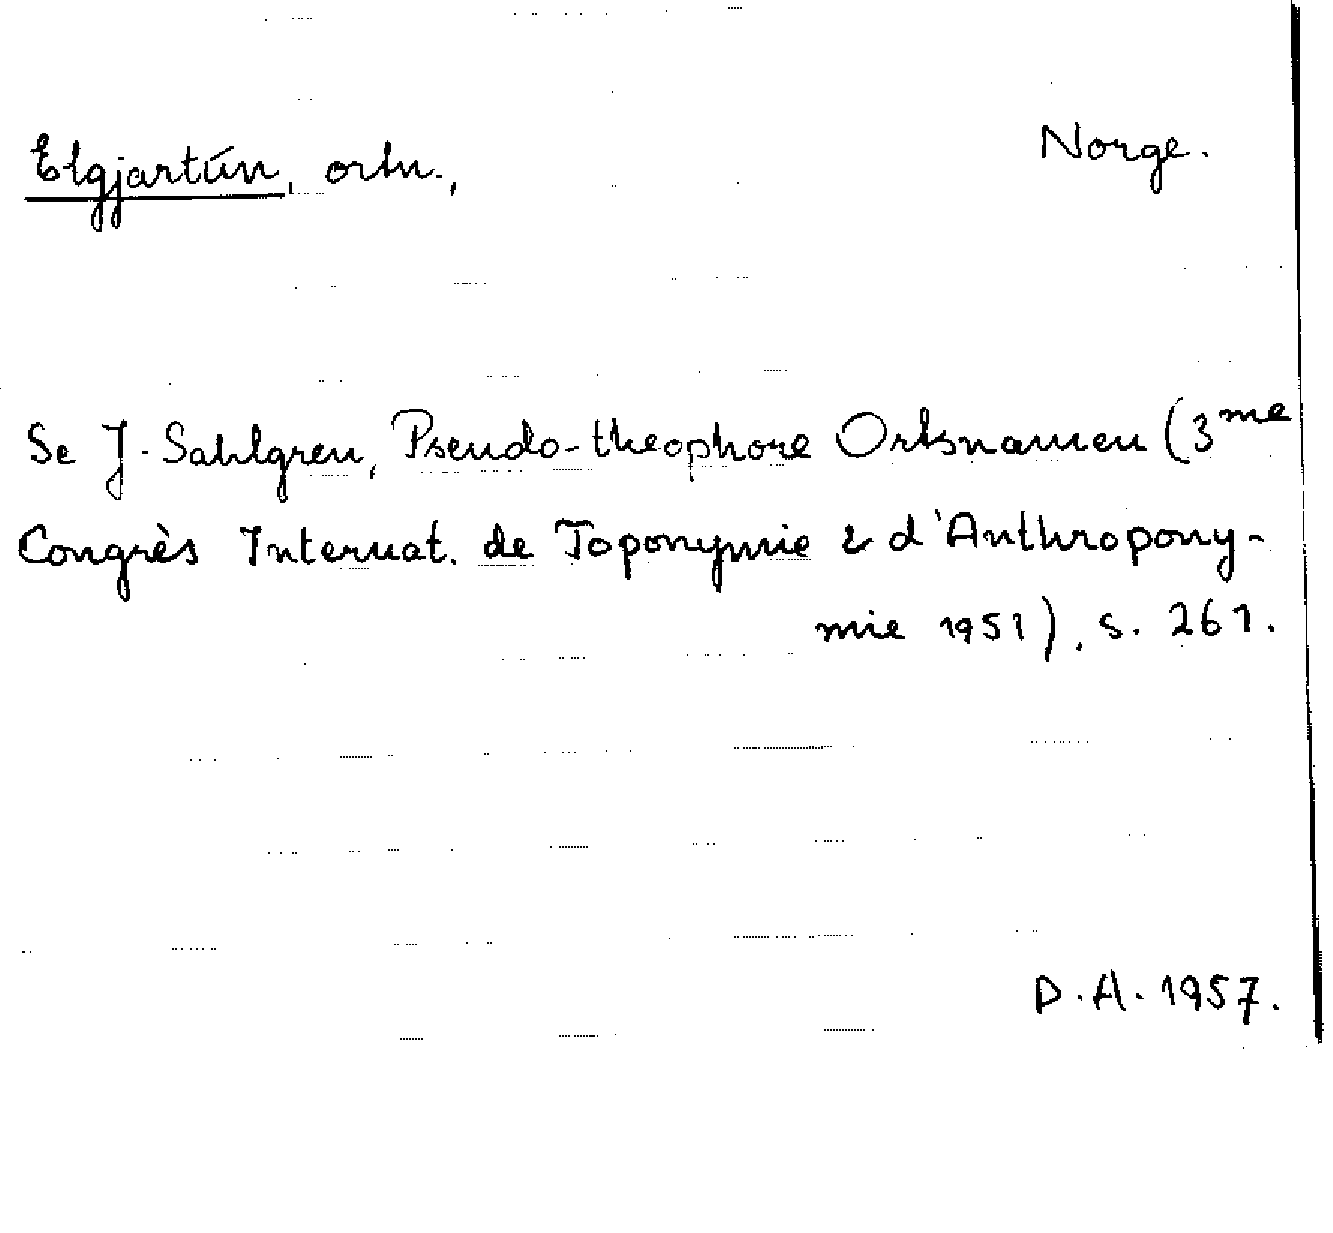 Elgjartún, ortn., Norge.
Se J. Sahlgren, Pseudo-theophore Ortsnamen (3me
Congrès Internat. de Toponymie & d'Anthropony-
mie 1951), s. 261.
D.A. 1957.